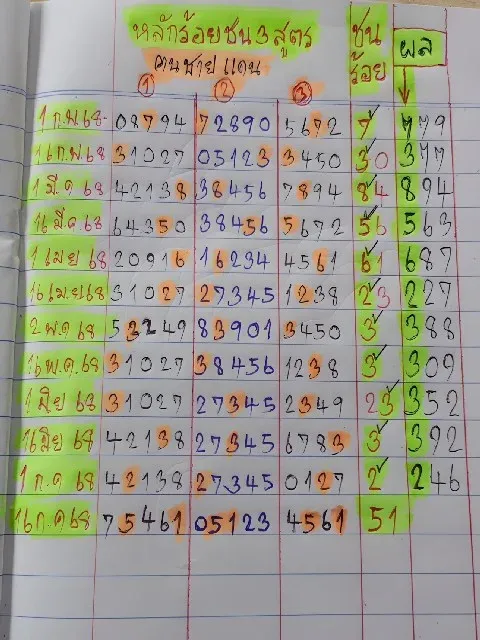 หลักร้อยชน3สูตร ชน ร้อย ผล
คนชายแดน
① ② ③
1 ก.พ 68 08794 72890 5672 7 779
16 ก.พ 68 31027 05123 3450 30 377
1 มี.ค 68 42138 38456 7894 84 894
16 มี.ค. 68 64350 38456 5672 56 563
1 เมย 68 20916 16234 4561 61 687
16 เม.ย 68 31027 27345 1238 23 227
2 พ.ค 68 52249 83901 3450 3 388
16 พ.ค. 68 31027 38456 1238 3 309
1 มิย 68 31027 27345 2349 23 352
16 มิย 68 42138 27345 6783 3 392
1 ก.ค 68 42138 27345 0127 2 246
16 ก.ค 68 75461 05123 4561 51